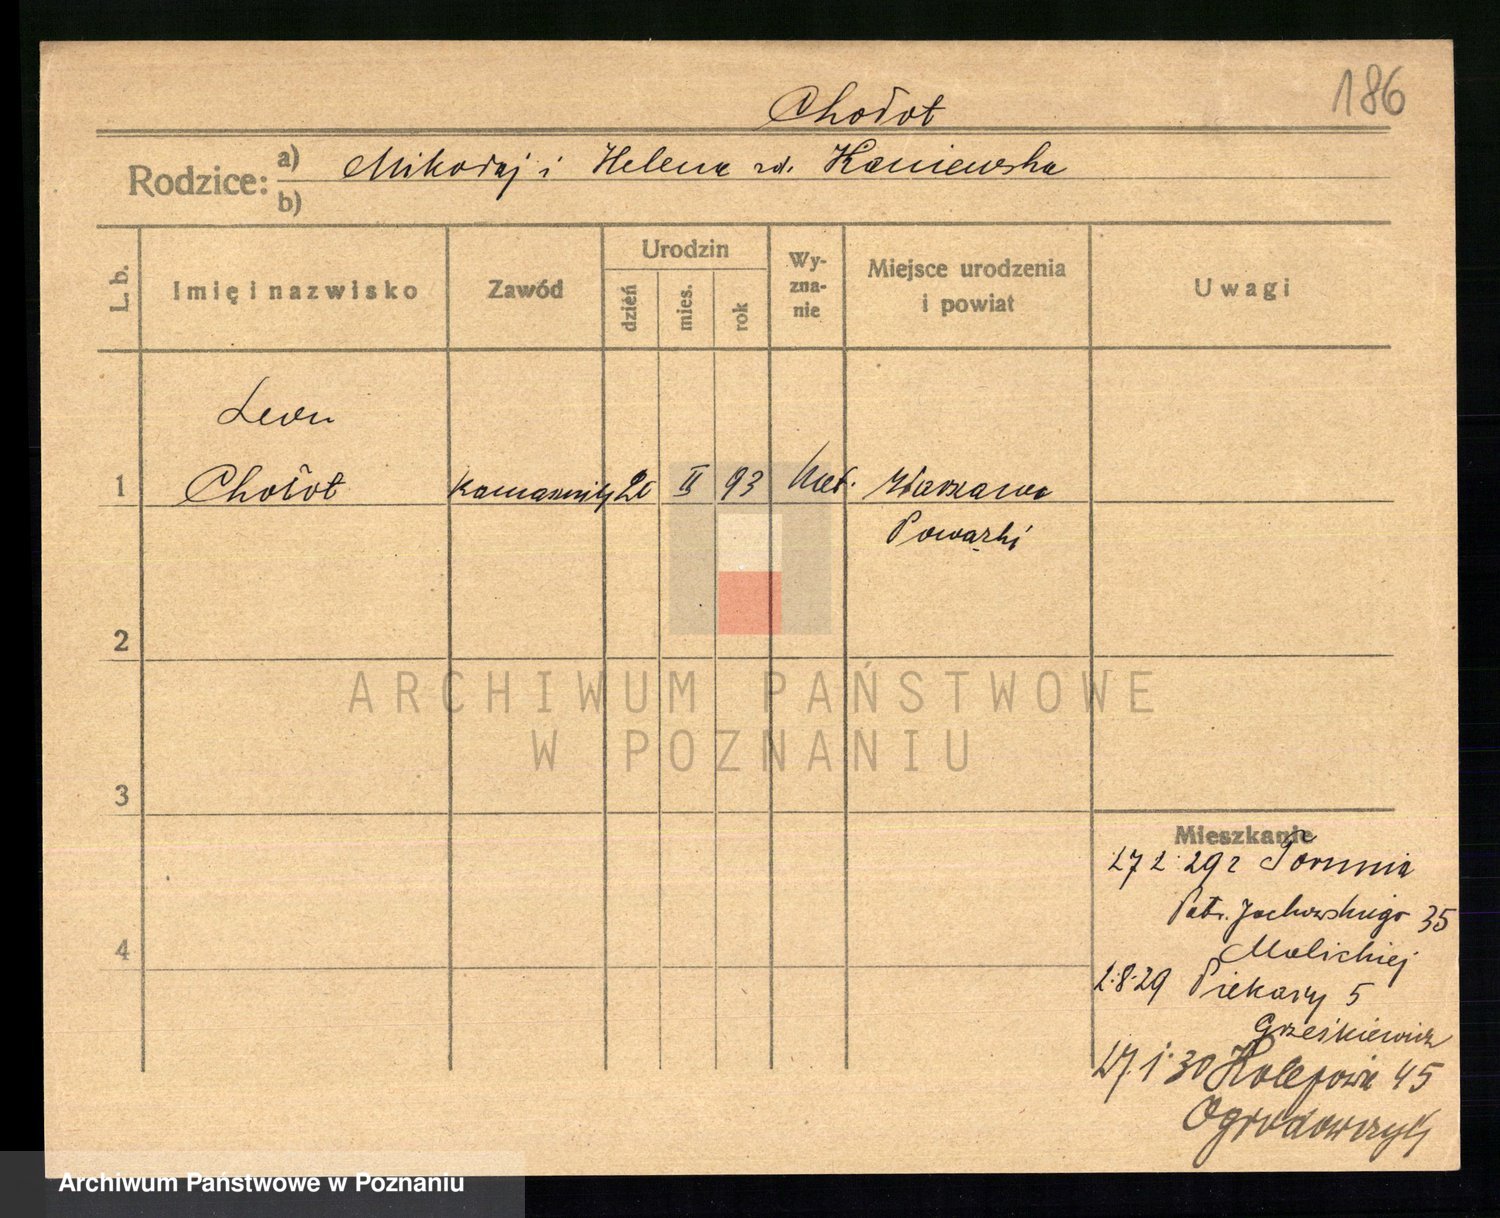 186
Chołot
Rodzice: a) Mikołaj i Helena zd. Kaniewska
b)
L. b.
Imię i nazwisko
Zawód
Urodzin
dzień
mies.
rok
Wy-
zna-
nie
Miejsce urodzenia
i powiat
Uwagi
Leon
1 Chołot II 93 Warszawa
Powązki
2
ARCHIWUM PAŃSTWOWE
W POZNANIU
3
Mieszkanie
27 2 29 z Torunia
Patr. Jackowskiego 35
4
2.8.29 Piekary 5
Grześkiewicz
27.1.30 Kolejowa 45
Ogrodowczyk
Archiwum Państwowe w Poznaniu